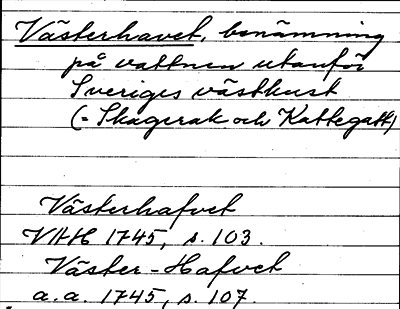 Västerhavet, benämning
på vattnen utanför
Sveriges västkust
(= Skagerak och Kattegatt)
Västerhafvet
VHH 1745, s. 103.
Väster-Hafvet
a.a. 1745, s. 107.